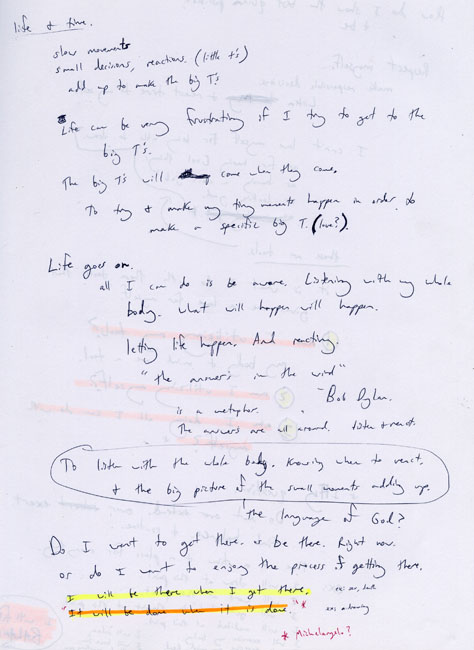 life & time.
slow movements
small decisions, reactions. (little t's)
add up to make the big T's.
Life can be very frustrating if I try to get to the
big T's.
The big T's will come when they come.
To try & make my tiny moments happen in order to
make a specific big T. (love?).
Life goes on.
all I can do is be aware. Listening with my whole
body. what will happen will happen.
letting life happen. And reacting.
"the answer's in the wind"
- Bob Dylan.
is a metaphor.
The answers are all around. listen & react.
To listen with the whole body. Knowing when to react.
& the big picture of the small moments adding up.
the language of God?
Do I want to get there. or be there. Right now.
or do I want to enjoy the process of getting there.
I will be there when I get there.
"It will be done when it is done" *
* Michelangelo?